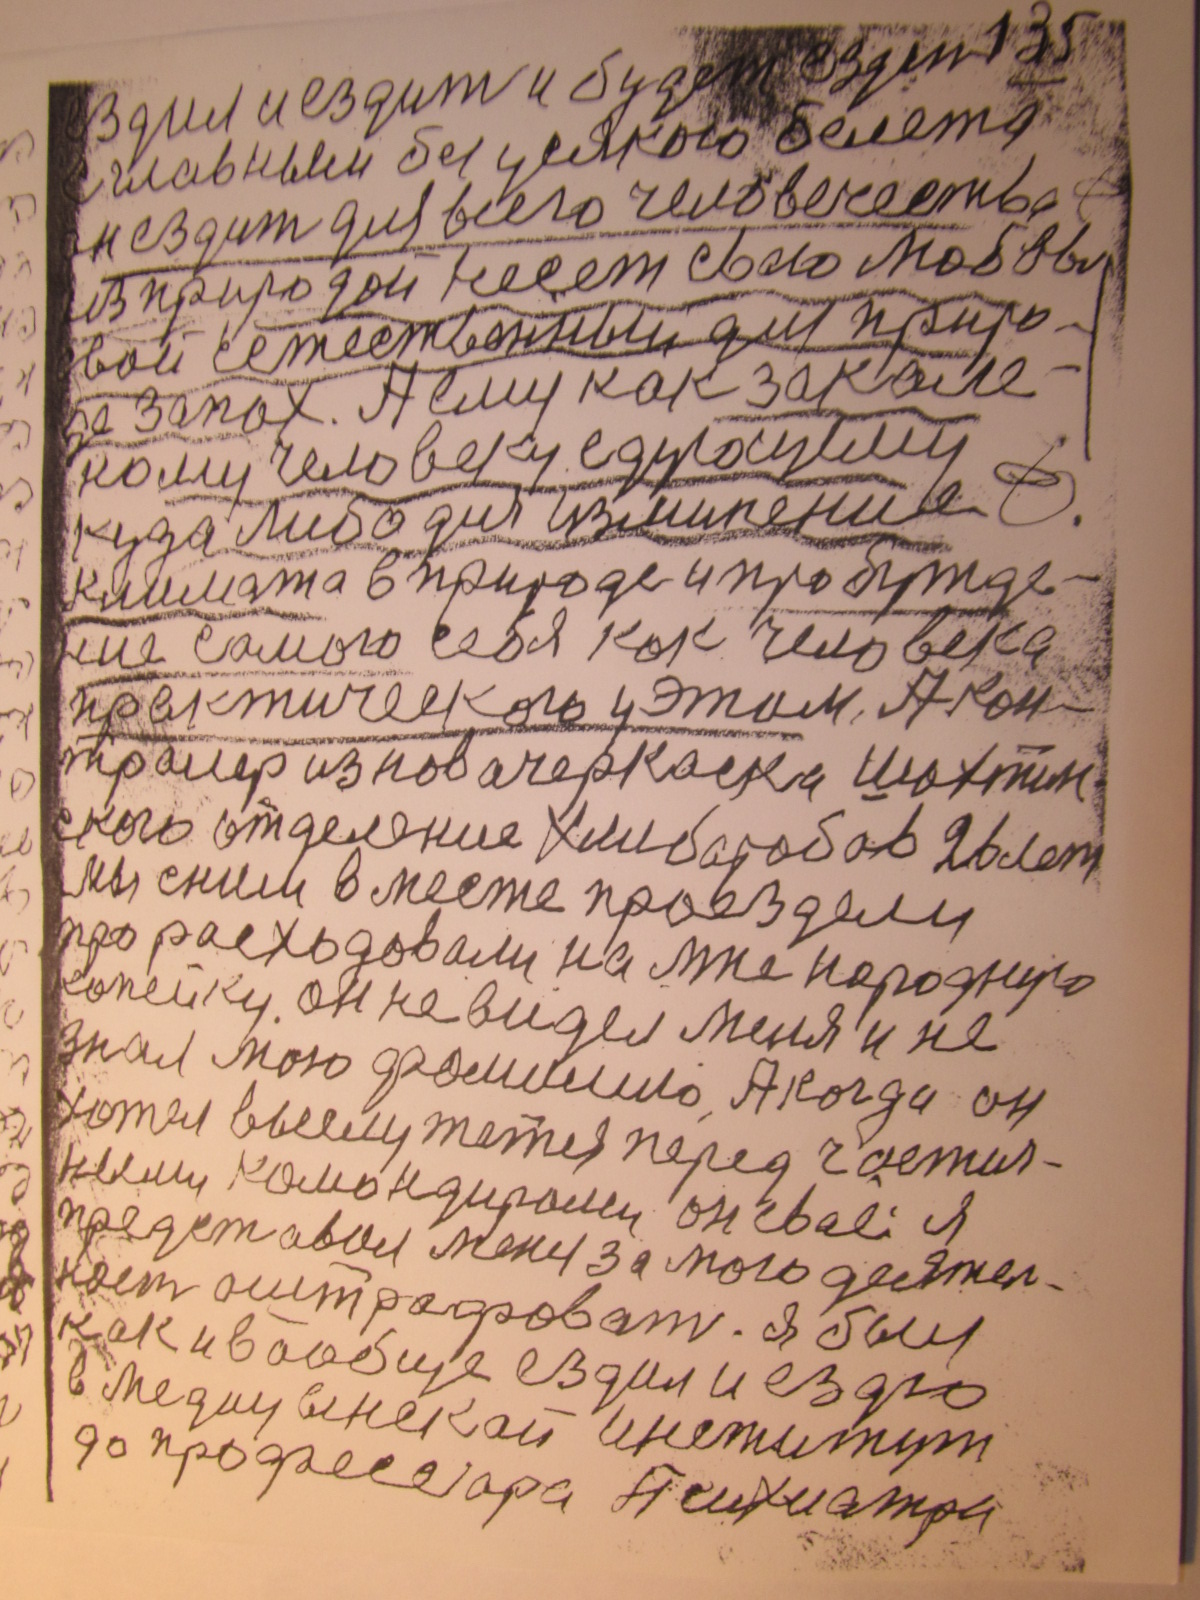 135
ездил и ездит и будет ездит
с главным без усякого белета
он ездит для всего человечества
из природой несет свою любовь
свой сетественный для приро-
де запох. А ему как закале-
ному человеку едущему
куда либо для изминение
климата в природе и пробужде-
ние самого себя как человека
практического у этом. А кон-
тролер из новачеркаска Шахтин-
ского отделение Хлибаробов 26 лет
мы сним в месте проездели
про расходовали на мне народную
копейку. он не видел меня и не
знал мою фомилию. А когда он
хотел выслужется перед частия-
ными командироми он свае: я
представил меня за мого деятел-
ност оштрафоват. я был
как и вообще ездил и ездю
в медицынской институт
до профессора Психиатри